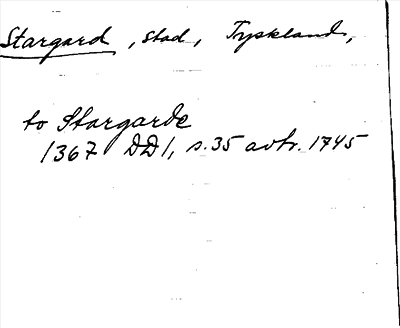 Stargard, stad, Tyskland,
to Stargarde
1367 DD1, s. 35 avtr. 1745